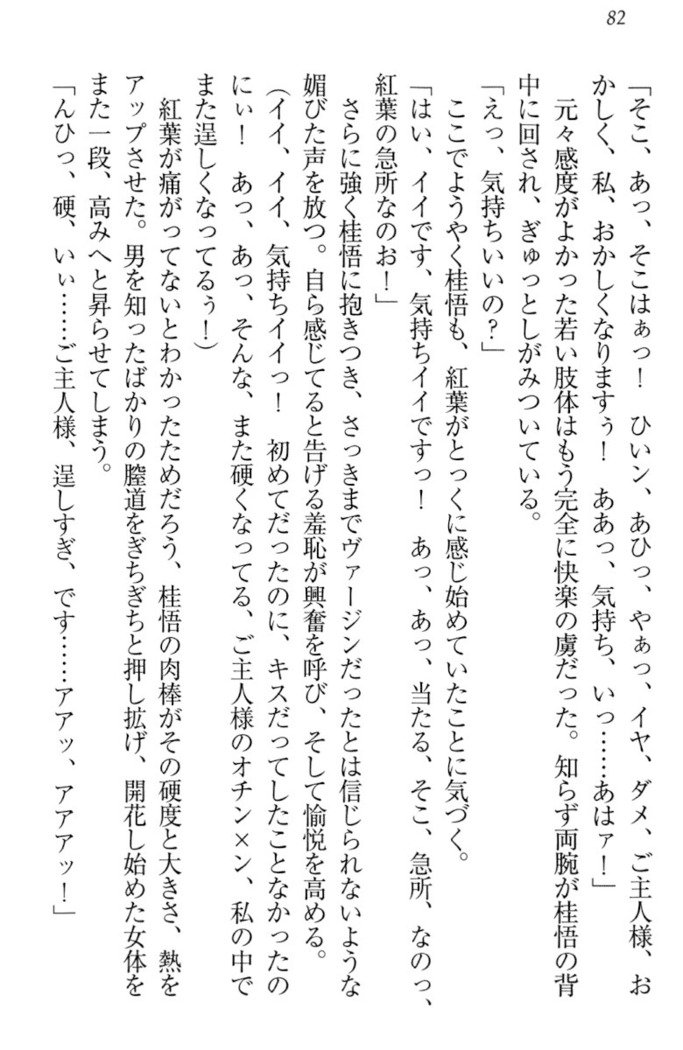 82
「そこ、あっ、そこはぁっ！　ひいン、あひっ、やぁっ、イヤ、ダメ、ご主人様、お
かしく、私、おかしくなりますぅ！　ああっ、気持ち、いっ……あはァ！」
　元々感度がよかった若い肢体はもう完全に快楽の虜だった。知らず両腕が桂悟の背
中に回され、ぎゅっとしがみついている。
「えっ、気持ちいいの？」
　ここでようやく桂悟も、紅葉がとっくに感じ始めていたことに気づく。
「はい、イイです、気持ちイイですっ！　あっ、あっ、当たる、そこ、急所、なのっ、
紅葉の急所なのお！」
　さらに強く桂悟に抱きつき、さっきまでヴァージンだったとは信じられないような
媚びた声を放つ。自ら感じてると告げる羞恥が興奮を呼び、そして愉悦を高める。
（イイ、イイ、気持ちイイっ！　初めてだったのに、キスだってしたことなかったの
にぃ！　あっ、あっ、そんな、また硬くなってる、ご主人様のオチン×ン、私の中で
また逞しくなってるぅ！）
　紅葉が痛がってないとわかったためだろう、桂悟の肉棒がその硬度と大きさ、熱を
アップさせた。男を知ったばかりの膣道をぎちぎちと押し拡げ、開花し始めた女体を
また一段、高みへと昇らせてしまう。
「んひっ、硬、いぃ……ご主人様、逞しすぎ、です……アアッ、アアアッ！」